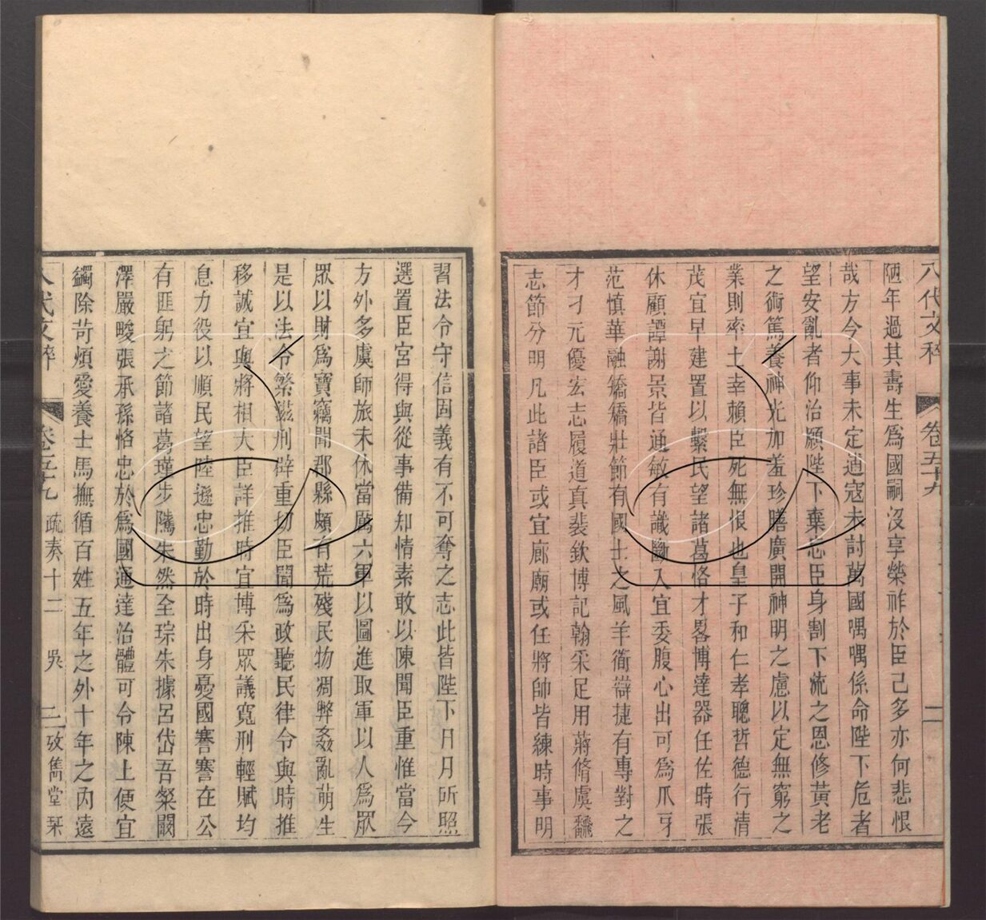 八代文粹
卷五十九
二
陋年過其壽生爲國嗣沒享榮祚於臣己多亦何悲恨
哉方今大事未定逋寇未討萬國喁喁係命陛下危者
望安亂者仰治願陛下棄忘臣身割下流之恩修黃老
之術篤養神光加羞珍膳廣開神明之慮以定無窮之
業則率土幸賴臣死無恨也皇子和仁孝聰哲德行清
茂宜早建置以繫民望諸葛恪才畧博達器任佐時張
休顧譚謝景皆通敏有識斷入宜委腹心出可爲爪牙
范慎華融矯矯壯節有國士之風羊衜辯捷有專對之
才刁元優宏志履道真裴欽博記翰采足用蔣脩虞翻
志節分明凡此諸臣或宜廊廟或任將帥皆練時事明
習法令守信固義有不可奪之志此皆陛下日月所照
選置臣宮得與從事備知情素敢以陳聞臣重惟當今
方外多虞師旅未休當厲六軍以圖進取軍以人爲眾
眾以財爲寶竊聞郡縣頗有荒殘民物凋弊姦亂萌生
是以法令繁滋刑辟重切臣聞爲政聽民律令與時推
移誠宜與將相大臣詳推時宜博采眾議寬刑輕賦均
息力役以順民望陸遜忠勤於時出身憂國謇謇在公
有匪躬之節諸葛瑾步隲朱然全琮朱據呂岱吾粲闞
澤嚴畯張承孫恪忠於爲國通達治體可令陳上便宜
蠲除苛煩愛養士馬撫循百姓五年之外十年之內遠
八代文粹
卷五十九
疏奏十二
吳
二
攷雋堂栞